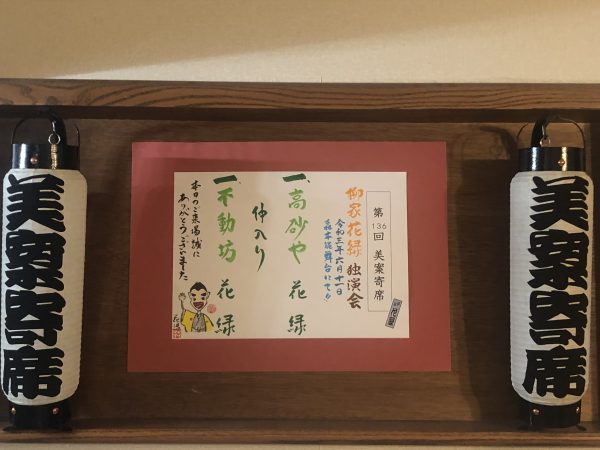 美案寄席
第136回 美案寄席
柳家花緑 独演会
令和三年六月十一日
森本能舞台にて
一、高砂や 花緑
仲入り
一、不動坊 花緑
本日のご来場誠に
ありがとうございました
花緑
美案寄席